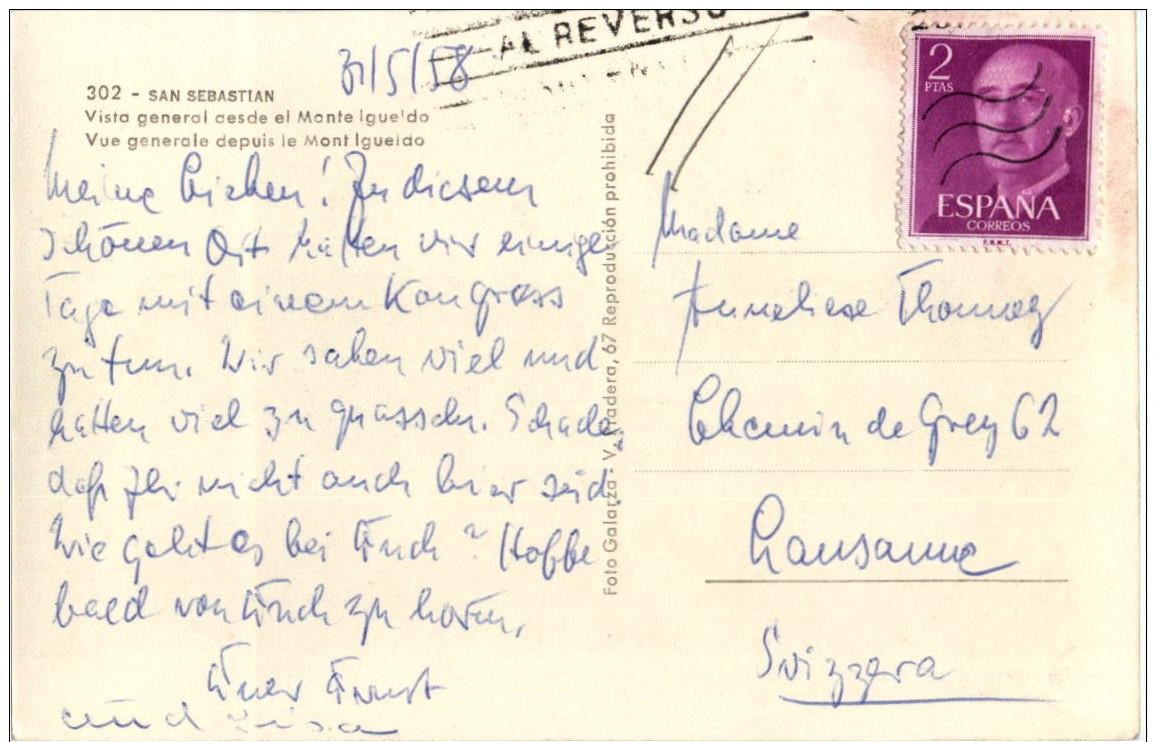 AL REVERSO
31/5/58
302 - SAN SEBASTIAN
Vista general desde el Monte Igueldo
Vue generale depuis le Mont Igueldo
Meine Lieben! In diesem
schönen Ort hatten wir einige
Tage mit einem Kongress
zu tun. Wir sahen viel und
hatten viel zu quasseln. Schade
daß Ihr nicht auch hier seid.
Wie geht es bei Euch? Hoffe
bald von Euch zu hören.
Euer Ernst
und Lisa
Foto Galarza - V. Pradera, 67 Reproducción prohibida
2
PTAS
ESPAÑA
CORREOS
F.N.M.T.
Madame
Anneliese
Chemin de Grey 62
Lausanne
Svizzera